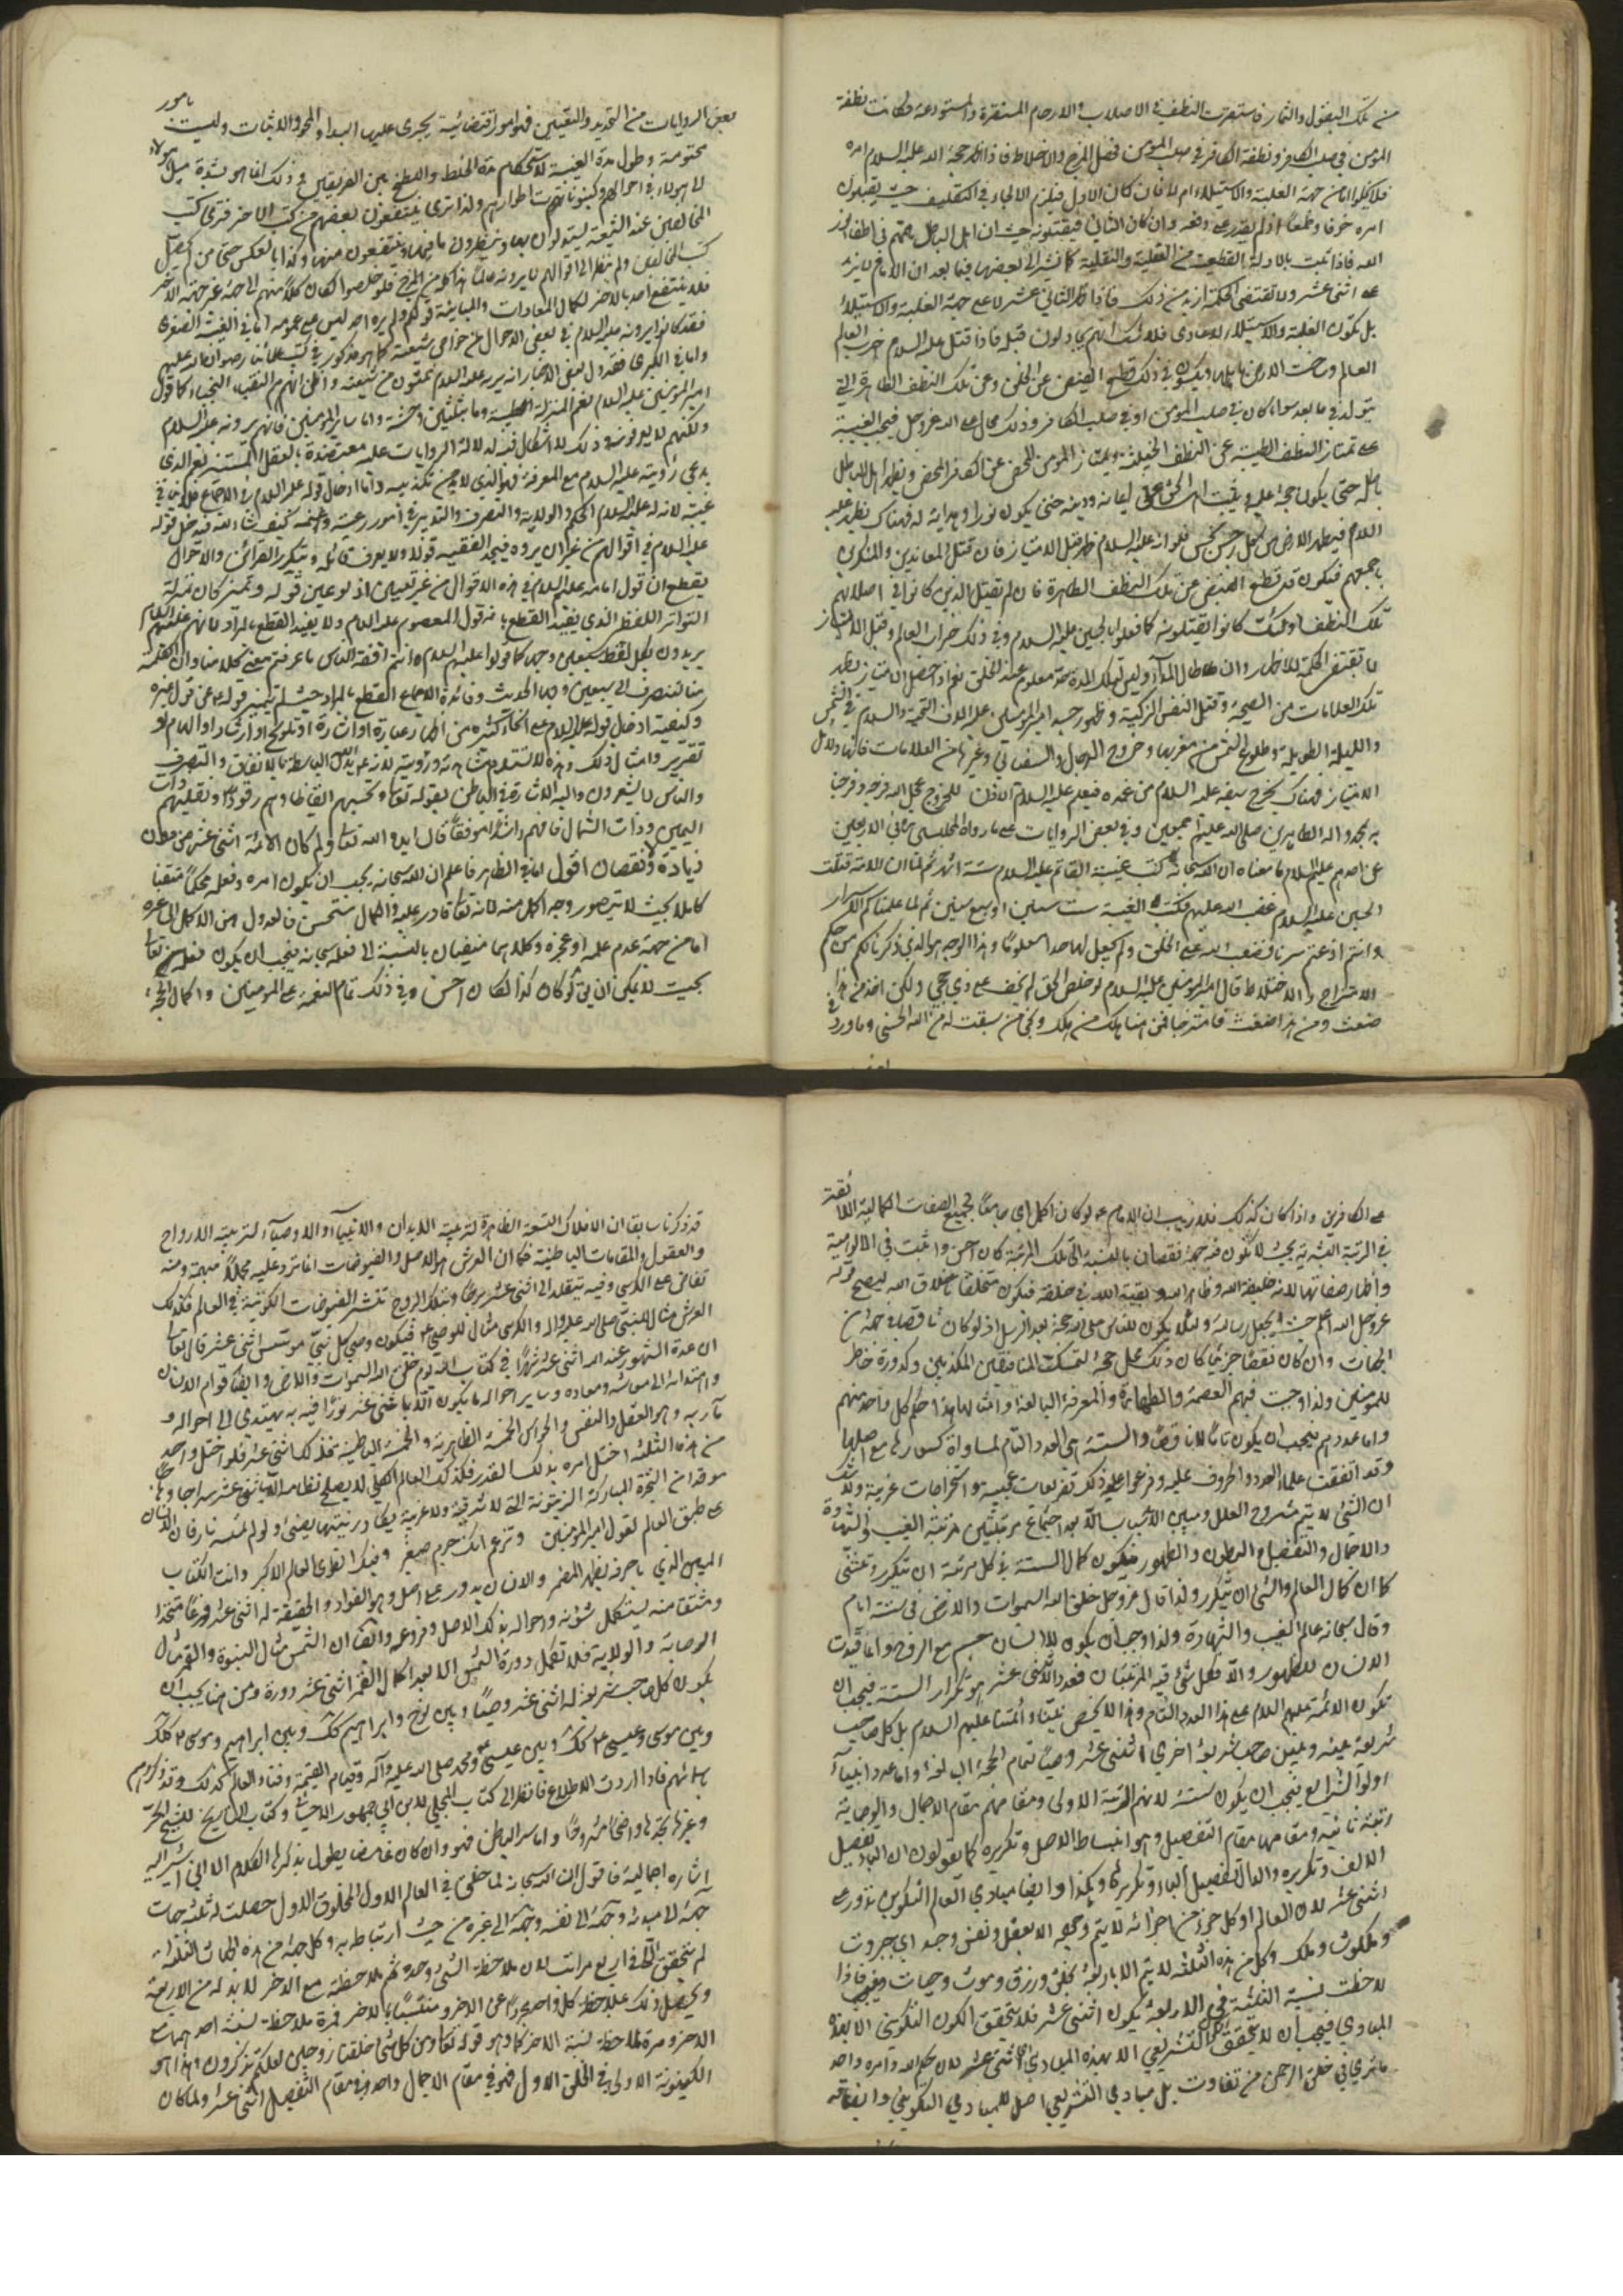 من تلك البقول والثمار فاستقرت النطف في الاصلاب والارحام المستقرة والمستودعة فكانت نطفة
المؤمن في صلب الكافر ونطفة الكافر في صلب المؤمن فحصل المزج والاختلاط فاذا ظهر حجة الله عليه السلام امره
فلا يخلو اما من جهة الغلبة والاستيلاء ام لا فان كان الاول فيلزم الالجاء في التكليف حيث يقبلون
امره خوفا وطمعا اذ لم يقدر على دفعه وان كان الثاني فيقتلونه حيث ان اهل الباطل همتهم في اطفاء نور
الله فاذا ثبت بالادلة القطعية من العقلية والنقلية كما نشير الى بعضها فيما بعد ان الامام لا يزيد
على اثنى عشر ولا تقتضي الحكمة ازيد من ذلك فاذا ظهر الثاني عشر لا على جهة الغلبة والاستيلاء
بل تكون الغلبة والاستيلاء للاعادي فلا شك انهم يحاولون قتله فاذا قتل عليه السلام خرب العالم
العالم وساخت الارض باهلها ويكون في ذلك قطع الفيض عن الخلق وعن تلك النطف الطاهرة التي
يتولد في ما بعد سواء كان في صلب المؤمن او في صلب الكافر وذلك محال على الله عز وجل فيجب الغيبة
حتى تمتاز النطف الطيبة عن النطف الخبيثة ويمتاز المؤمن المحض عن الكافر المحض ويظهر اهل الباطل
باطله حتى يكون حجة عليه ويثبت اهل الحق على ايمانه ودينه حتى يكون نورا وهداية له فهناك يظهر عليه
السلام فيطهر الارض من كل رجس نجس فلو انه عليه السلام ظهر قبل الامتياز فان قتل المعاندين والمنكرين
باجمعهم فيكون قد قطع الفيض عن تلك النطف الطاهرة فان لم يقتل الذين كانوا في اصلابهم
تلك النطف اولئك كانوا يقتلونه كما فعلوا بالحسين عليه السلام وفي ذلك خراب العالم وقبل الامتياز
لا تقتضي الحكمة للاظهار وان طال المدار وليس لتلك المدة حد معلوم عند الخلق نعم اذا حصل الامتياز يظهر
تلك العلامات من الصيحة وقتل النفس الزكية وظهور جسد امير المؤمنين عليه الاف التحية والسلام في الشمس
والليلة الطويلة وطلوع الشمس من مغربها وخروج الدجال والسفياني وغيرها من العلامات فانها دلائل
الامتياز فهناك يخرج سيفه عليه السلام من غمده فيعلم عليه السلام الاذن للخروج عجل الله فرجه وفرجنا
به بمحمد واله الطاهرين صلى الله عليهم اجمعين وفي بعض الروايات على ما رواه المجلسي في الاربعين
عن احدهم عليهم السلام ما معناه ان الله سبحانه كتب غيبة القائم عليه السلام ستة اشهر ثم لما ان الامة قتلت
الحسين عليه السلام غضب الله عليهم فكتب الغيبة ست سنين او سبع سنين ثم لما علمناكم الاسرار
وانتم اذعتم سرنا فغضب الله على الخلق ولم يجعل لها حدا معلوما وهذا الوجه هو الذي ذكرنا لكم من حكم
الامتزاج والاختلاط قال امير المؤمنين عليه السلام لو خلص الحق لم يخف على ذي حجى ولكن اخذ من هذا
ضغث ومن هذا ضغث فامتزجا فمن هنا هلك من هلك ونجى من سبقت له من الله الحسنى وما ورد في
بعض الروايات من التحديد والتعيين فهو امور اقتضائية يجري عليها البداء والمحو والاثبات وليست بامور
محتومة وطول مدة الغيبة لاستحكام مدة الخلط واللطخ بين الفريقين وفي ذلك انما هو لشدة ميل هؤلاء
لاهؤلاء في احوالهم وكينوناتهم واطوارهم ولذا ترى ينتفعون بعضهم من كتب الاخر فترى كتب
المخالفين عند الشيعة يتداولون بها وينظرون ما فيها وينتفعون منها وكذا بالعكس حتى من لم يحصل
كتب المخالفين ولم ينظر الى اقوالهم لا يرونه عالما هذا كله من المزج فلو خلصوا لكان كلا منهم الى جهة غير جهة الاخر
فلا ينتفع احد بالاخر لكمال المعادات والمباينة قولكم ولم يره احد ليس على عمومه اما في الغيبة الصغرى
فقد كانوا يرونه عليه السلام في بعض الاحوال من خواص شيعته كما هو مذكور في كتب علمائنا رضوان الله عليهم
واما في الكبرى فقد دل بعض الاخبار انه يريه عليه السلام ثلثون من شيعته واظن انهم هم النقباء النجباء كما قول
امير المؤمنين عليه السلام نعم المنزلة الطيبة وما بثلثين وحشة واما ساير المؤمنين فانهم يرونه عليه السلام
ولكنهم لا يعرفونه وذلك لا اشكال فيه لدلالة الروايات عليه معتضدة بالعقل المستنير نعم الذي
يدعي رؤيته عليه السلام مع المعرفة فهو الذي لابد من تكذيبه واما ادخال قوله عليه السلام في الاجماع فلا ينافي
غيبته لانه له عليه السلام الحكم والولاية والتصرف والتدبير في امور رعيته وغنمه كيف شاء الله فيدخل قوله
عليه السلام في اقوالهم من غير ان يروه فيجد الفقيه قولا ولا يعرف قائله وبتكرر القرائن والاحوال
يقطع ان قول امامه عليه السلام في هذه الاقوال من غير تعيين اذ لو عين قوله وتميز كان بمنزلة
التواتر اللفظي الذي يفيد القطع بانه قول المعصوم عليه السلام ولا يفيد القطع بالمراد لانهم عليهم السلام
يريدون بكل لفظ سبعين وجها كما قولوا عليهم السلام انتم افقه الناس ما عرفتم معنى كلامنا وان الكلمة
منا لتنصرف الى سبعين وجها الحديث وفائدة الاجماع القطع بالمراد حيث لم يتميز قوله عن قول غيره
وكيفية ادخال قوله عليه السلام على انحاء كثيرة من اظهار عبارة او اشارة او تلويح او ارشاد او الهام او
تقرير وامثال ذلك وهذه لا تستلزم مشاهدته ورؤيته لانه عين الله ويد الله الباسطة بالانفاق والتصرف
والناس لا يشعرون واليه الاشارة في الباطن بقوله تعالى وتحسبهم ايقاظا وهم رقود ونقلبهم ذات
اليمين وذات الشمال فافهم راشدا موفقا قال ايده الله تعالى ولم كان الائمة اثنى عشر من دون
زيادة ونقصان اقول اما في الظاهر فاعلم ان الله سبحانه يجب ان يكون امره وفعله محكما متقنا
كاملا بحيث لا يتصور وجه اكمل منه لانه تعالى قادر عليه والكمال مستحسن فالعدول من الاكمل الى غيره
اما من جهة عدم علمه او عجزه وكلاهما منفيان بالنسبة الى فعله سبحانه فيجب ان يكون فعله تعالى
بحيث لا يمكن ان يق لو كان كذا لكان احسن وفي ذلك تمام النعمة على المؤمنين واكمال الحجة
على الكافرين واذا كان كذلك فلا ريب ان الامام ع لو كان اكمل اي جامعا لجميع الصفات الكمالية اللائقة
في الرتبة البشرية بحيث لا يكون فيه جهة نقصان بالنسبة الى تلك المرتبة كان احسن واثبت في المألوهية
واظهار صفاتها لانه خليفة الله وظاهر الله وبقية الله في خلقه فيكون متخلقا باخلاق الله ليصح قوله
عز وجل الله اعلم حيث يجعل رسالته ولئلا يكون للناس على الله حجة بعد الرسل اذ لو كان ناقصا في جهة من
الجهات وان كان نقصا جزئيا كان ذلك محل حجة لتمسك المنافقين المكذبين وكدورة خاطر
للمؤمنين ولذا وجبت فيهم العصمة والطهارة والمعرفة البالغة وامثالها هذا حكم كل واحد منهم
واما عددهم فيجب ان يكون تاما لا ناقصا والستة هي العدد التام لمساواة كسورها مع اصلها
وقد اتفقت علماء العدد والحروف عليه وفرعوا على ذلك تفريعات عجيبة واستخراجات غريبة ولا شك
ان الشئ لا يتم مشروح العلل ومبين الاسباب الا بعد اجتماع مرتبتين مرتبة الغيب والشهادة
والاجمال والتفصيل والبطون والظهور فيكون كمال الستة في كل مرتبة ان تتكرر وتتثنى
كما ان كمال العالم والشئ ان يتكرر ولذا قال عز وجل خلق الله السموات والارض في ستة ايام
وقال سبحانه عالم الغيب والشهادة ولذا وجب ان يكون للانسان جسم مع الروح وانما قيدت
الانسان للظهور والا فكل شئ فيه المرتبتان فعدد الاثنى عشر هو تكرار الستة فيجب ان
تكون الائمة عليهم السلام على هذا العدد التام وهذا لا يخص نبينا وائمتنا عليهم السلام بل كل صاحب
شريعة بينه وبين صاحب شريعة اخرى اثنى عشر وصيا لتمام الحجة البالغة واما عدد انبياء
اولوا الشرايع فيجب ان يكون ستة لانهم المرتبة الاولى ومقامهم مقام الاجمال والوصاية
رتبة ثانية ومقامها مقام التفصيل وهو انبساط الاصل وتكريره كما يقولون ان الباء تفصيل
الالف وتكريره والدال تفصيل الباء وتكريرها وهكذا وايضا مبادي العالم التكوين تدور على
اثنى عشر لان العالم او كل جزء من اجزائه لا يتم وجوه الا بعقل ونفس وجسد اي جبروت
وملكوت وملك وكل من هذه الثلثة لا يتم الا باربعة بخلق ورزق وموت وحيات فاذا
لاحظت نسبة الثلثة في الاربعة يكون اثنى عشر فلا يتحقق الكون التكويني الا بهذه
المبادي فيجب ان لا يتحقق الكون التشريعي الا بهذه المبادي الاثنى عشر لان حكم الله وامره واحد
ما ترى في خلق الرحمن من تفاوت بل مبادي التشريعي اصل للمبادي التكويني وايضا قد
قد ذكرنا سابقا ان الافلاك التسعة الظاهرة لتربية الابدان والانبياء والاوصياء لتربية الارواح
والعقول والمقامات الباطنية فكما ان العرش هو الاصل والفيوضات انما ترد عليه مجملا مبهمة ومنه
تفاض على الكرسي وفيه يتفصل الى اثنى عشر برجا وبتلك البروج تنتشر الفيوضات الكونية في العالم فكذلك
العرش مثال للنبي صلى الله عليه واله والكرسي مثال للوصي ع فيكون وصي كل نبي مؤسس اثنى عشر قال تعالى
ان عدة الشهور عند الله اثنى عشر شهرا في كتاب الله يوم خلق الله السموات والارض وايضا قوام الانسان
واهتدائه الى معاشه ومعاده وساير احواله ما يكون الا باثنى عشر نورا فيه به يهتدي الى احواله و
مآربه وهو العقل والنفس والحواس الخمسة الظاهرية والخمسة الباطنية فذلك كله اثنى عشر فلو اختل واحد
من هذه الثلثة اختل امره بذلك القدر فكذلك العالم الكلي لا يصلح نظامه الا باثنى عشر سراجا وهاجا
موقدا من الشجرة المباركة الزيتونة التي لا شرقية ولا غربية يكاد زيتها يضئ ولو لم تمسسه نار فان الانسان
على طبق العالم لقول امير المؤمنين وتزعم انك جرم صغير وفيك انطوى العالم الاكبر وانت الكتاب
المبين الذي باحرفه يظهر المضمر والانسان يدور على اصل وهو الفؤاد والحقيقة له اثنى عشر فرعا متخذا
ومشتقا منه ليستكمل شؤونه واحواله بذلك الاصل وفروعه وايضا ان الشمس مثال النبوة والقمر مثال
الوصاية والولاية فلا تكمل دورة الشمس الا بعد اكمال القمر اثنى عشر دورة ومن هنا يجب ان
يكون كل صاحب شريعة له اثنى عشر وصيا وبين نوح وابراهيم كك وبين ابراهيم وموسى ع كك
وبين موسى وعيسى ع كك وبين عيسى ومحمد صلى الله عليه وآله وقيام القيمة وفناء العالم كذلك وقد ذكروهم
باسمائهم فاذا اردت الاطلاع فانظر الى كتاب المجلي لابن ابي جمهور الاحسائي وكتاب التاريخ للشيخ الحر
وغيرها تجدها واضحا مشروحا واما سر الباطن فهو وان كان غامضا يطول بذكره الكلام الا اني اشير اليه
اشارة اجمالية فاقول ان الله سبحانه لما خلق في العالم الاول المخلوق الاول حصلت له ثلثة جهات
جهة الى مبدئه وجهة الى نفسه وجهة الى غيره من حيث ارتباطه به وكل جهة من هذه الجهات الثلثة
لم تتحقق الا في اربع مراتب لان ملاحظة الشئ وحده ثم ملاحظته مع الاخر لا بد له من الاربعة
ويحصل ذلك بملاحظة كل واحد مجردا عن الاخر ومنتسبا بالاخر فمرة ملاحظة نسبة احدهما مع
الاخر ومرة لملاحظة نسبة الاخر كما هو قوله تعالى ومن كل شئ خلقنا زوجين لعلكم تذكرون وهذا هو
الكينونة الاولى في الخلق الاول فهو في مقام الاجمال واحد وفي مقام التفصيل اثنى عشر ولما كان